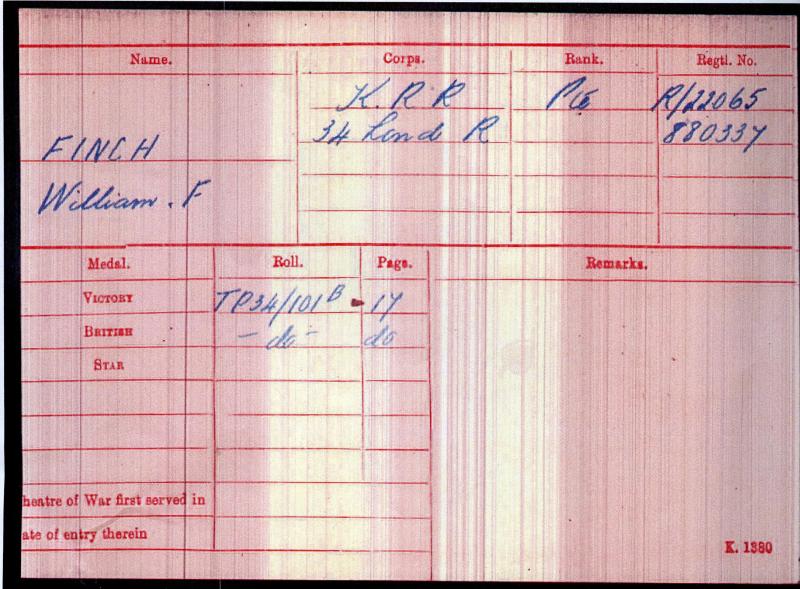 Name. Corps. Rank. Regtl. No.
K. R R Pte R/22065
FINCH 34 Lond R 880337
William . F
Medal. Roll. Page. Remarks.
VICTORY TP34/101 B 17
BRITISH - do - do
STAR
heatre of War first served in
ate of entry therein
K. 1380